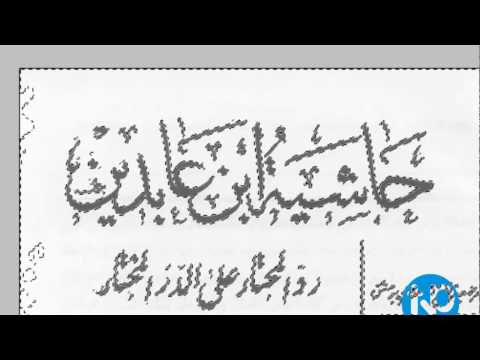 حاشية ابن عابدين
رد المحتار على الدر المختار